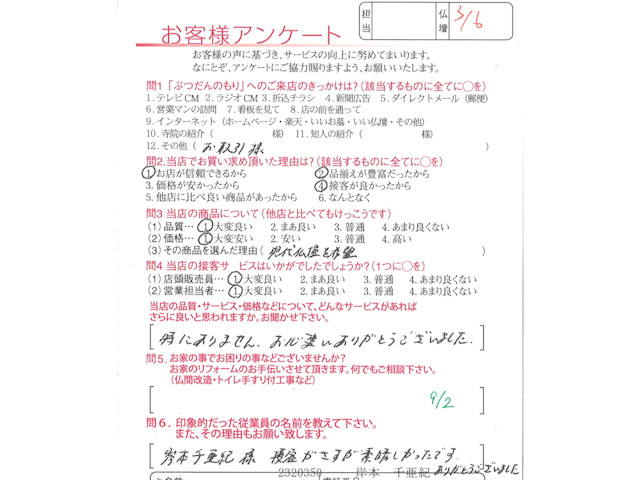 担当
仏壇
3/6
お客様アンケート
お客様の声に基づき、サービスの向上に努めてまいります。
なにとぞ、アンケートにご協力賜りますよう、お願いいたします。
問1「ぶつだんのもり」へのご来店のきっかけは?(該当するものに全てに○を)
1.テレビCM 2.ラジオCM 3.折込チラシ 4.新聞広告 5.ダイレクトメール(郵便)
6.営業マンの訪問 7.看板を見て 8.店の前を通って
9.インターネット(ホームページ・楽天・いいお墓・いい仏壇・その他)
10.寺院の紹介( 様) 11.知人の紹介( 様)
12.その他( お取引様 )
問2.当店でお買い求め頂いた理由は?(該当するものに全てに○を)
1.お店が信頼できるから 2.品揃えが豊富だったから
3.価格が安かったから 4.接客が良かったから
5.他店に比べ良い商品があったから 6.なんとなく
問3 当店の商品について(他店と比べてもけっこうです)
(1)品質… 1.大変良い 2.まあ良い 3.普通 4.あまり良くない
(2)価格… 1.大変安い 2.安い 3.普通 4.高い
(3)その商品を選んだ理由( 現代仏壇を希望 )
問4 当店の接客サービスはいかがでしたでしょうか?(1つに○を)
(1)店頭販売員… 1.大変良い 2.まあ良い 3.普通 4.あまり良くない
(2)営業担当者… 1.大変良い 2.まあ良い 3.普通 4.あまり良くない
当店の品質・サービス・価格などについて、どんなサービスがあれば
さらに良いと思われますか。お聞かせ下さい。
特にありません。お心遣いありがとうございました。
問5. お家の事でお困りの事などございませんか?
お家のリフォームのお手伝いさせて頂きます。何でもご相談下さい。
(仏間改造・トイレ手すり付工事など)
9/2
問6. 印象的だった従業員の名前を教えて下さい。
また、その理由もお願い致します。
岸本千亜紀 様 接客がさすが素晴しかったです
2320350 岸本 千亜紀 ありがとうございました